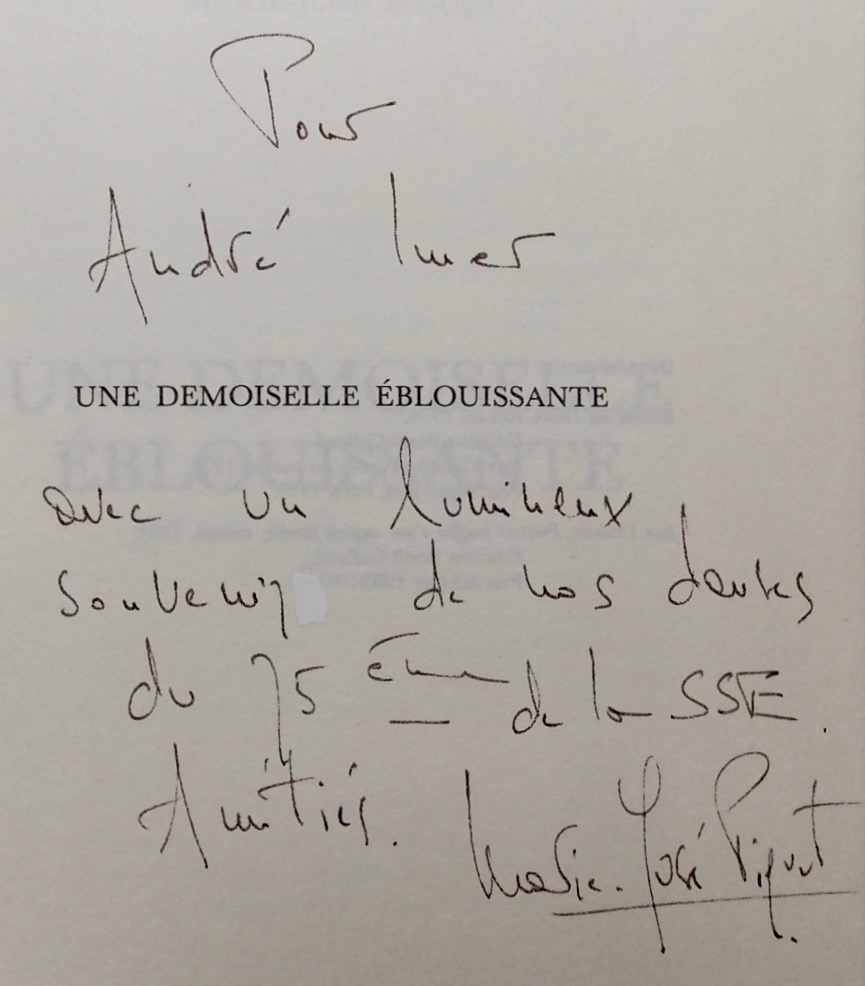 Pour
André Imer
UNE DEMOISELLE ÉBLOUISSANTE
avec un lumineux
souvenir de nos
du 75ème de la SSE.
Amitiés. Marie-José Piguet